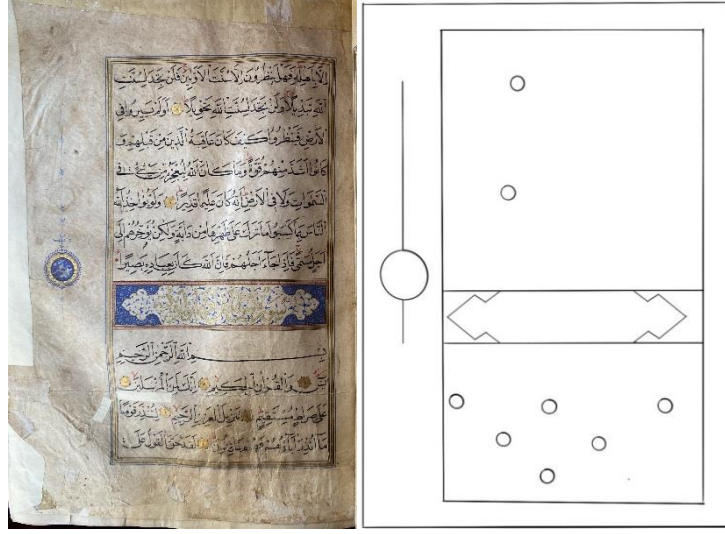 إلا بأهله فهل ينظرون إلا سنت الأولين فلن تجد لسنت
الله تبديلا ولن تجد لسنت الله تحويلا أولم يسيروا في
الأرض فينظروا كيف كان عاقبة الذين من قبلهم و
كانوا أشد منهم قوة وما كان الله ليعجزه من شيء في
السموات ولا في الأرض إنه كان عليما قديرا ولو يؤاخذ الله
الناس بما كسبوا ما ترك على ظهرها من دابة ولكن يؤخرهم إلى
أجل مسمى فإذا جاء أجلهم فإن الله كان بعباده بصيرا
بسم الله الرحمن الرحيم
يس والقرآن الحكيم إنك لمن المرسلين
على صراط مستقيم تنزيل العزيز الرحيم لتنذر قوما
ما أنذر آباؤهم فهم غافلون لقد حق القول على